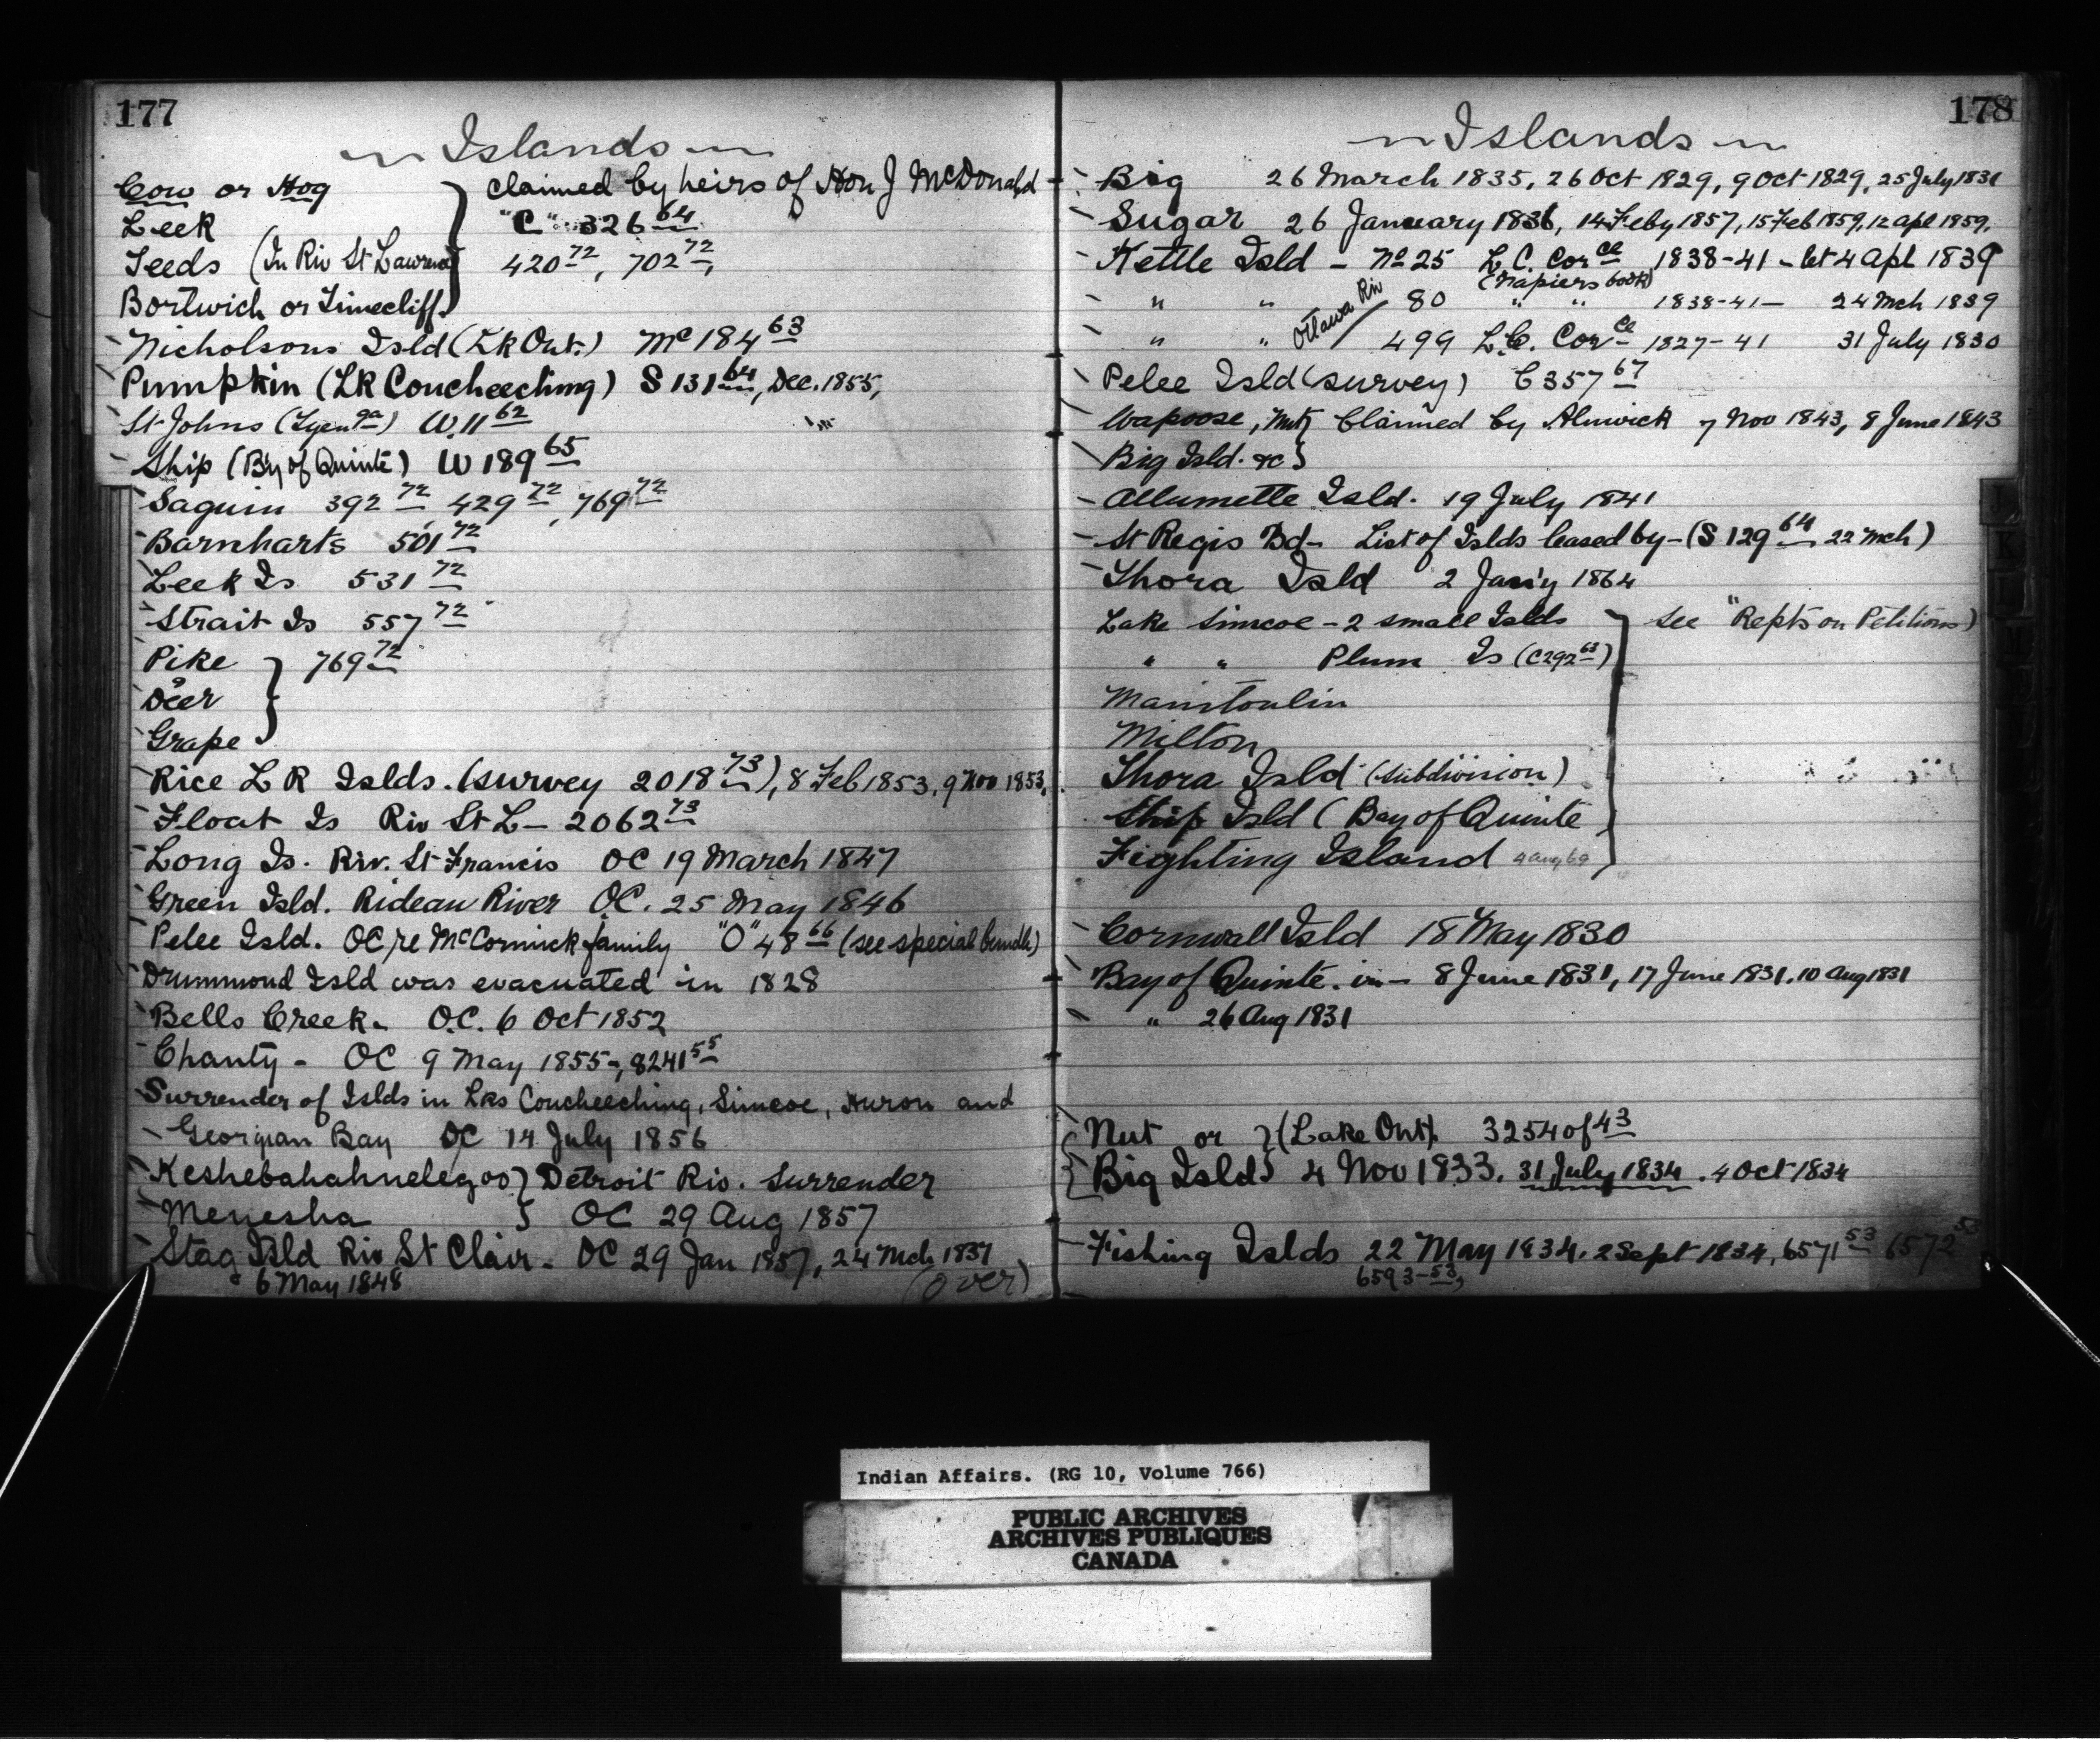 177
Islands
Cow or Hog } claimed by heirs of Hon J McDonald
Leek "C" 326 64
Leeds (In Riv St Lawrence) 420 72, 702 72,
Bortwich or Limecliff
Nicholsons Isld (Lk Ont.) Mc 184 63
Pumpkin (LK Coucheeching) S 131 64, Dec. 1855,
St Johns W. 11 62
Ship (B'y of Quinté) W 189 65
Saguin 392 72 429 72, 769 72
Barnharts 501 72
Leek Is 531 72
Strait Is 557 72
Pike } 769 72
Deer
Grape
Rice L R Islds. (survey 2018 73), 8 Feb 1853, 9 Nov 1853,
Float Is Riv St L - 2062 73
Long Is. Riv. St Francis OC 19 March 1847
Green Isld. Rideau River OC. 25 May 1846
Pelee Isld. OC re McCormick family "O" 48 66 (see special bundle)
Drummond Isld was evacuated in 1828
Bells Creek - O.C. 6 Oct 1852
Chanty - OC 9 May 1855 -, 8241 55
Surrender of Islds in Lks Coucheeching, Simcoe, Huron and
Georgian Bay OC 14 July 1856
Keshebahahnelegoo } Detroit Riv. Surrender
Menesha } OC 29 Aug 1857
Stag Isld Riv St Clair - OC 29 Jan 1857, 24 Mch 1837
" 6 May 1848 (over)
178
Islands
Big 26 March 1835, 26 Oct 1829, 9 Oct 1829, 25 July 1831
Sugar 26 January 1836, 14 Feby 1857, 15 Feb 1859, 12 apl 1859,
Kettle Isld - No 25 L. C. Corce 1838-41 - let 4 Apl 1839
(Napiers book)
" " Ottawa Riv 80 " " 1838-41 - 24 Mch 1839
" " 499 L.C. Corce 1827-41 31 July 1830
Pelee Isld (survey) C 357 67
Wapoose, Nut } Claimed by Alnwick 7 Nov 1843, 8 June 1843
Big Isld. &c }
Allumette Isld. 19 July 1841
St Regis Bd - List of Islds leased by - (S 129 64 22 Mch)
Thora Isld 2 Jan'y 1864
Lake Simcoe - 2 small Islds } see "Repts on Petitions)
" " Plum Is (C 292 63)
Manitoulin
Milton
Thora Isld (subdivision)
Ship Isld (Bay of Quinte
Fighting Island 4 Aug 69
Cornwall Isld 18 May 1830
Bay of Quinté. in - 8 June 1831, 17 June 1831, 10 Aug 1831
" 26 Aug 1831
Nut or } (Lake Ont). 3254 of 43
Big Isld } 4 Nov 1833. 31 July 1834. 4 Oct 1834
Fishing Islds 22 May 1834. 2 Sept 1834, 6571 53 6572 53
6593-53,
Indian Affairs. (RG 10, Volume 766)
PUBLIC ARCHIVES
ARCHIVES PUBLIQUES
CANADA